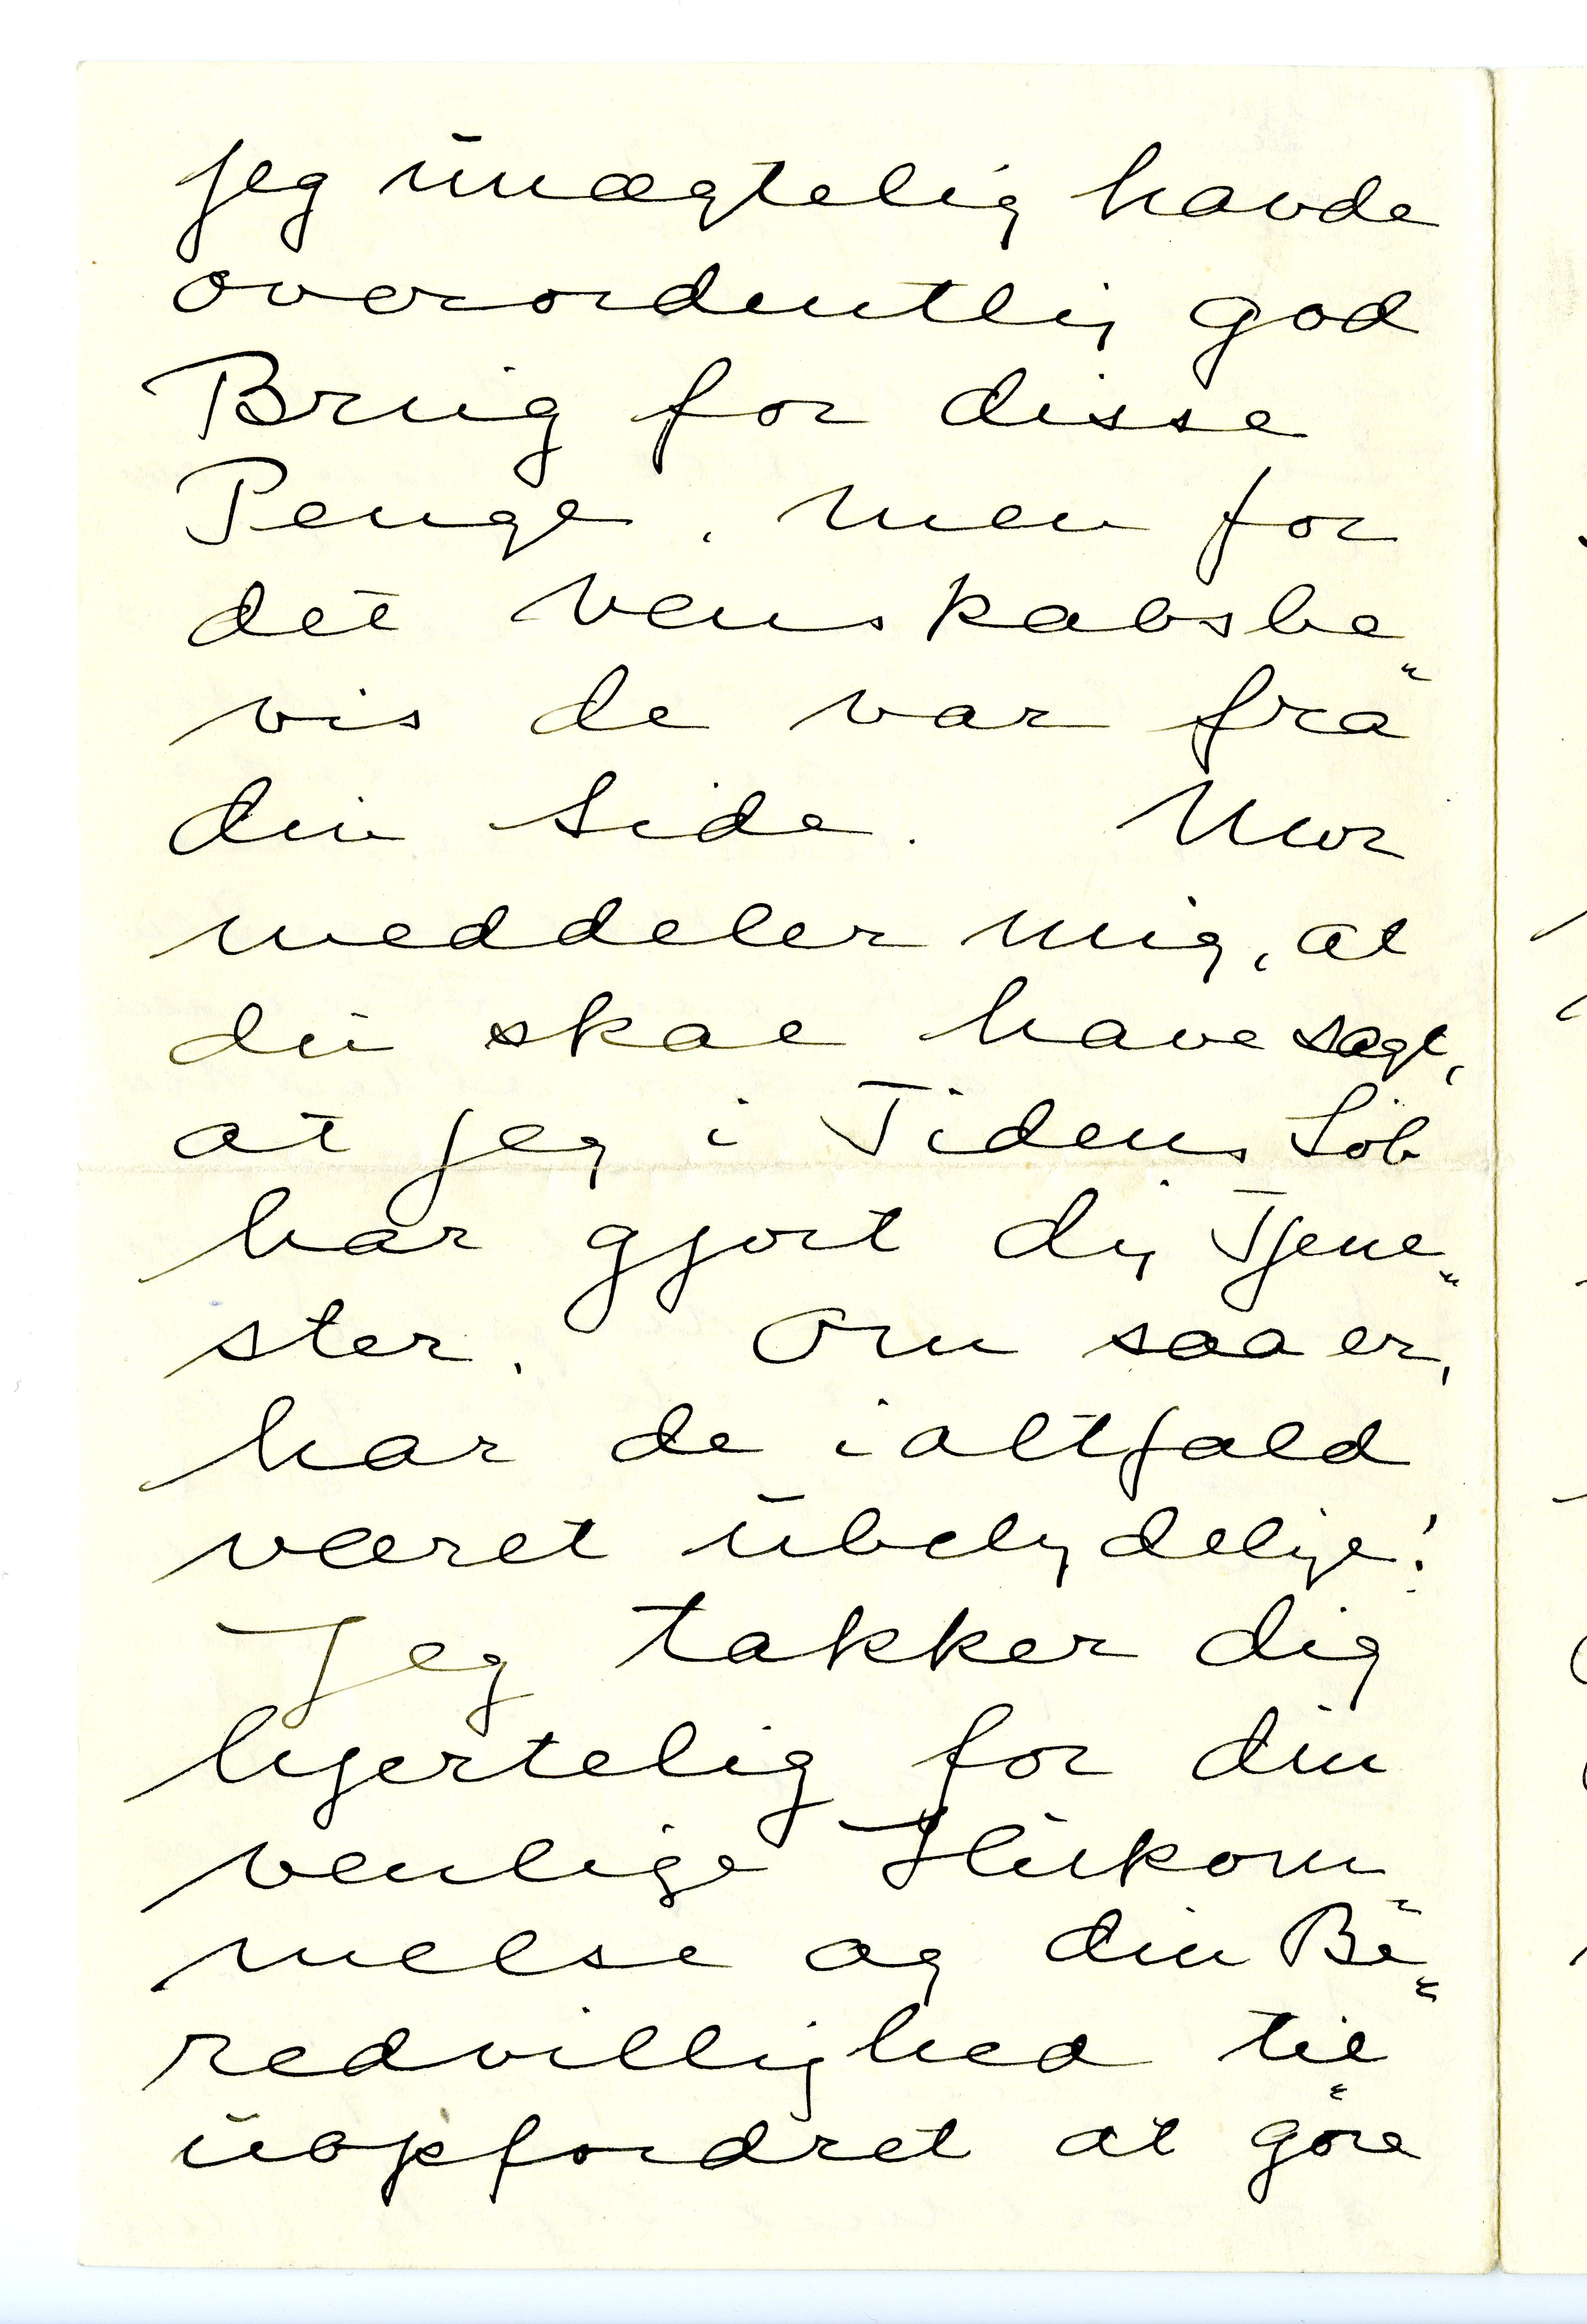 jeg unægtelig havde
overordentlig god
Brug for disse
Penge, men for
det Venskabsbe„
vis de var fra
din Side. Mor
meddeler mig, at
du skal have sagt,
at jeg i Tidens Løb
har gjort dig Tjene„
ster. Om saa er,
har de ialtfald
været ubetydelige!
Jeg takker dig
hjertelig for din
venlige Hukom„
melse og din Be„
redvillighed til
uopfordret at gøre